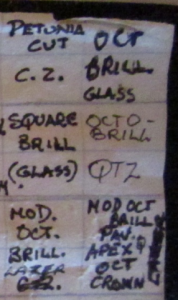 PETUNIA CUT
OCT BRILL GLASS
C.Z.
SQUARE BRILL (GLASS)
OCTO-BRILL
QTZ
MOD. OCT. BRILL.
MOD OCT BRILL
PAV.
APEX
OCT CROWN